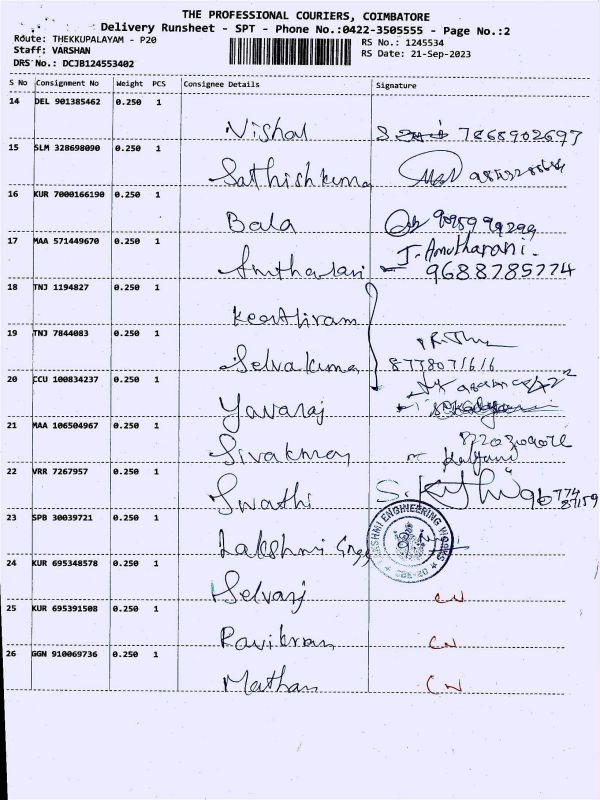 THE PROFESSIONAL COURIERS, COIMBATORE
Delivery Runsheet - SPT - Phone No.:0422-3505555 - Page No.:2
Route: THEKKUPALAYAM - P20
RS No.: 1245534
Staff: VARSHAN
RS Date: 21-Sep-2023
DRS No.: DCJB124553402
S No Consignment No Weight PCS Consignee Details Signature
14 DEL 901385462 0.250 1
Nishal 7868902697
15 SLM 328698090 0.250 1
Sathishkumar
16 KUR 7000166190 0.250 1
Bala
17 MAA 571449670 0.250 1
J. Amutharani.
9688785774
18 TNJ 1194827 0.250 1
Keerthiram
19 TNJ 7844083 0.250 1
Selvakumar 8778071616
20 CCU 100834237 0.250 1
Yavaraj
21 MAA 106504967 0.250 1
Sivakumar Kalyani
22 VRR 7267957 0.250 1
Swathi
23 SPB 30039721 0.250 1
Lakshmi Engg
LAKSHMI ENGINEERING WORKS
24 KUR 695348578 0.250 1
Selvaraj CN
25 KUR 695391508 0.250 1
Ravikiran CN
26 GGN 910069736 0.250 1
Mathan CN